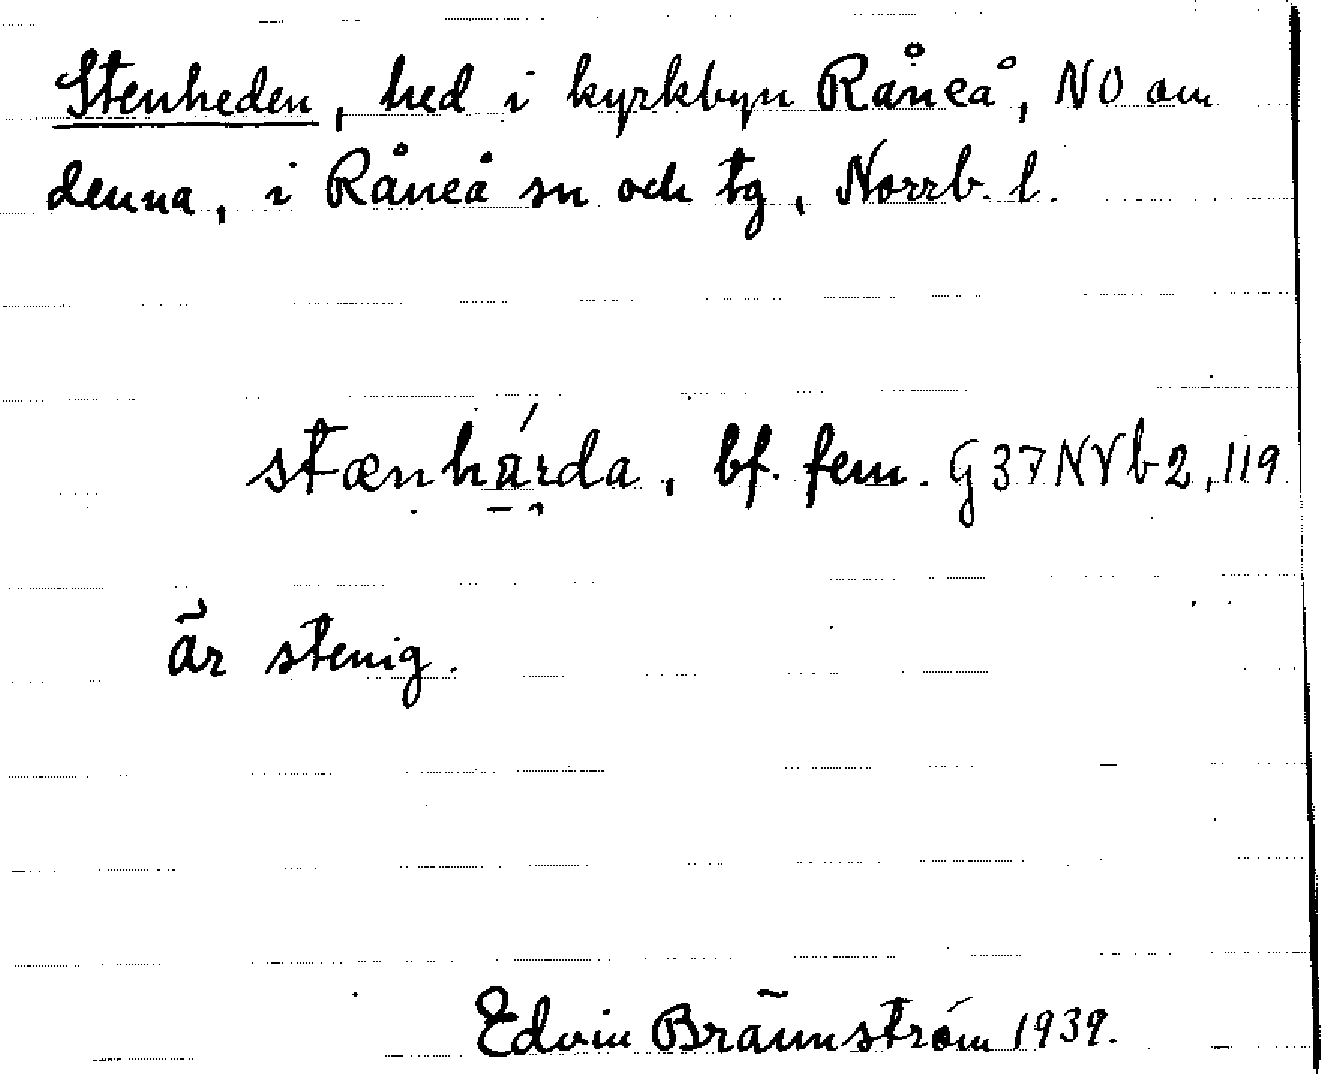 Stenheden, hed i kyrkbyn Råneå, NO om
denna, i Råneå sn och tg, Norrb. l.
bf. fem. G37NVb2,119
är stenig.
Edvin Brännström 1939.